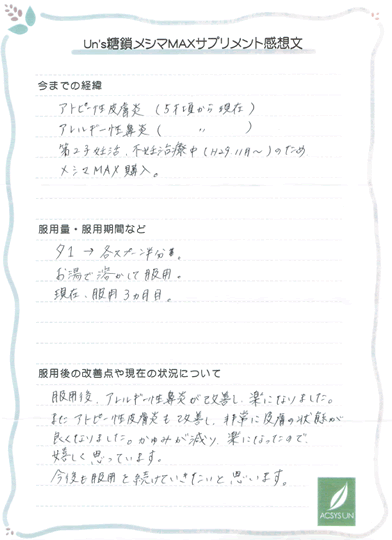 Un's糖鎖メシマMAXサプリメント感想文
今までの経緯
アトピー性皮膚炎（5才頃から現在）
アレルギー性鼻炎（　〃　）
第2子妊活、不妊治療中（H29.11月～）のため
メシマMAX購入。
服用量・服用期間など
夕1 → 各スプーン半分量。
お湯で溶かして服用。
現在、服用3ヵ月目。
服用後の改善点や現在の状況について
服用後、アレルギー性鼻炎が改善し、楽になりました。
またアトピー性皮膚炎も改善し、非常に皮膚の状態が
良くなりました。かゆみが減り、楽になったので、
嬉しく思っています。
今後も服用を続けていきたいと思います。
ACSYS UN